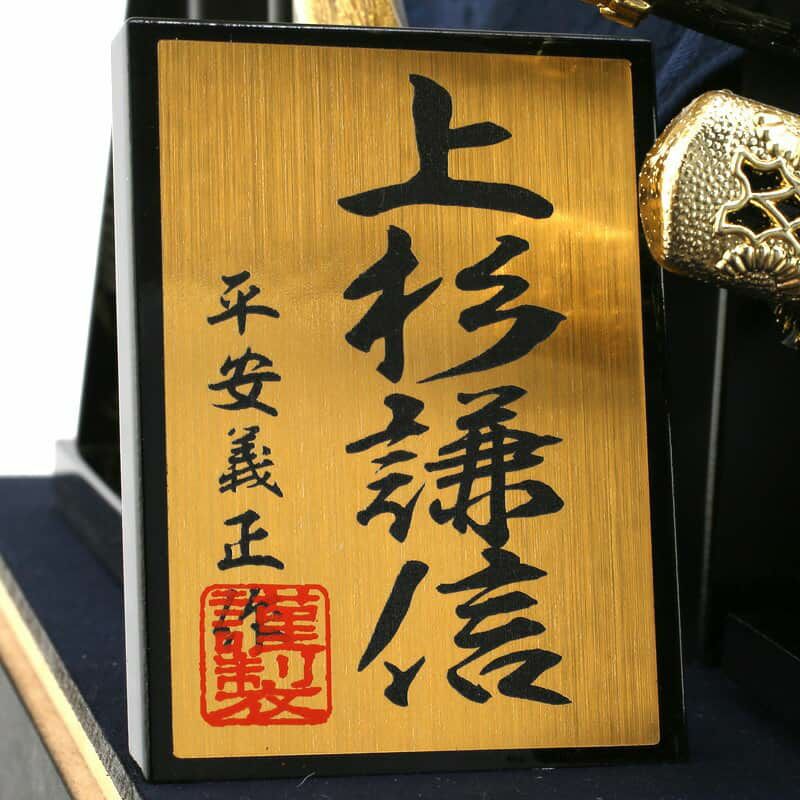 上杉謙信
平安義正作
謹製